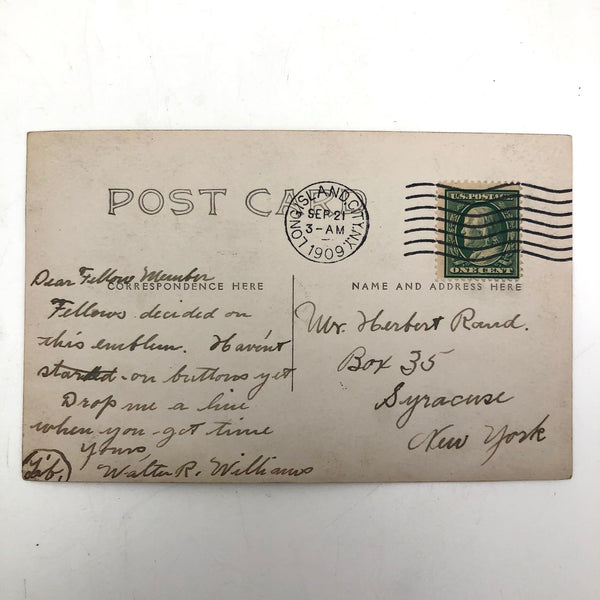 POST CARD
LONG ISLAND CITY, N.Y.
SEP 21
3-AM
1909
U.S. POSTAGE
ONE CENT
CORRESPONDENCE HERE
NAME AND ADDRESS HERE
Dear Fellow Member
Fellows decided on
this emblem. Haven't
started on buttons yet
Drop me a line
when you get time
Yours,
Walter R. Williams
Mr. Herbert Rand.
Box 35
Syracuse
New York